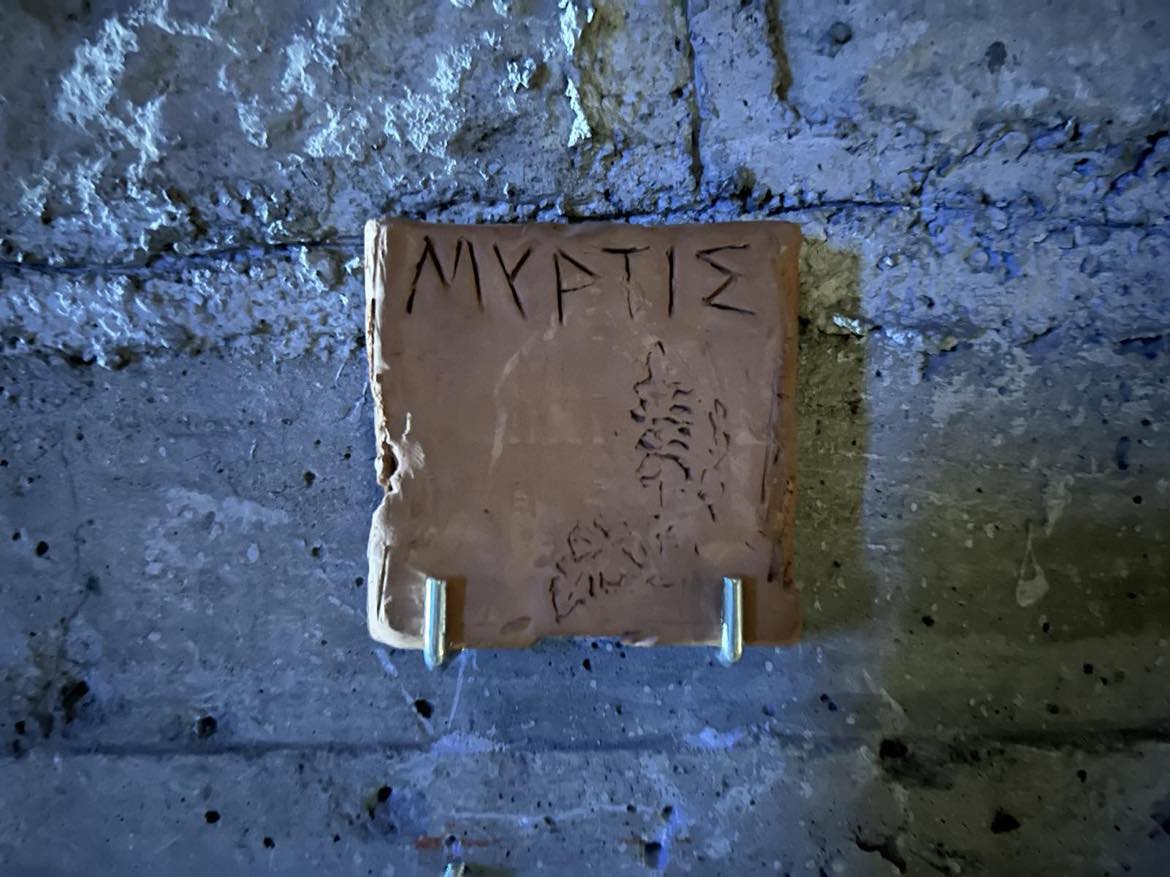 ΜΥΡΤΙΣ